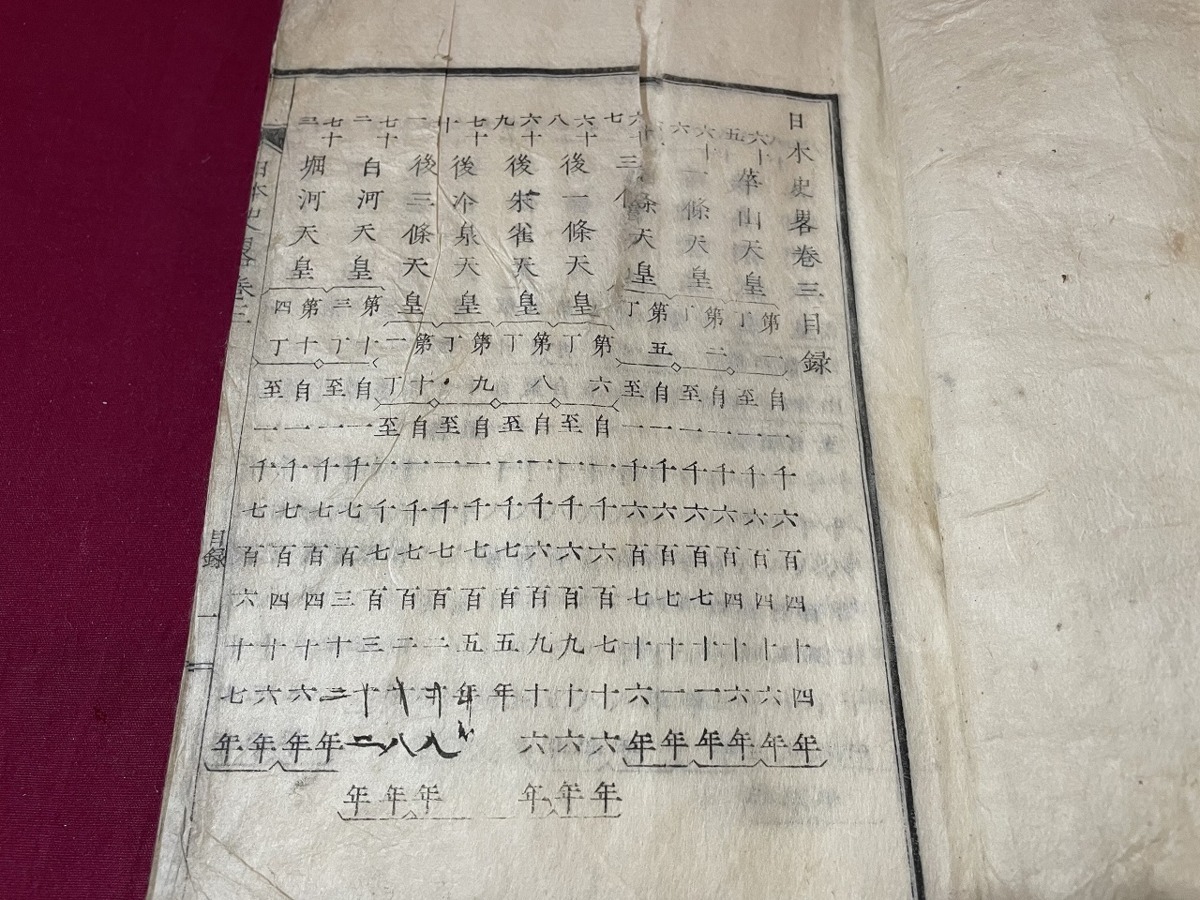 日本史畧卷三目録
六十五 花山天皇 第一丁 自一千六百四十四年
至一千六百四十六年
六十六 一條天皇 第二丁 自一千六百四十六年
至一千六百七十一年
六十七 三條天皇 第五丁 自一千六百七十一年
至一千六百七十六年
六十八 後一條天皇 第六丁 自一千六百七十六年
至一千六百九十六年
六十九 後朱雀天皇 第八丁 自一千六百九十六年
至一千七百五年
七十 後冷泉天皇 第九丁 自一千七百五年
至一千七百二十八年
七十一 後三條天皇 第十一丁 自一千七百二十八年
至一千七百三十二年
七十二 白河天皇 第十三丁 自一千七百三十二年
至一千七百四十六年
七十三 堀河天皇 第十四丁 自一千七百四十六年
至一千七百六十七年
日本史畧卷三 目録 一